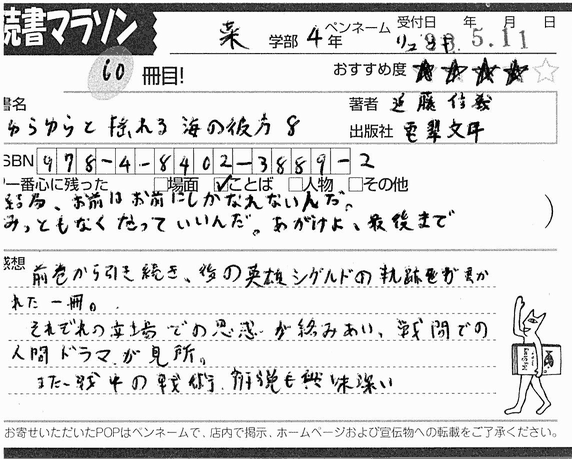 読書マラソン
薬 学部 4 年 ペンネーム リュウヤ 受付日 年 月 日
98.5.11
60 冊目! おすすめ度 ★★★★☆
書名 ゆらゆらと揺れる海の彼方 8
著者 近藤信義
出版社 電撃文庫
ISBN 978-4-8402-3889-2
一番心に残った □場面 ☑ことば □人物 □その他
結局、お前はお前にしかなれないんだ。
みっともなくたっていいんだ。あがけよ、最後まで
感想 前巻から引き続き、後の英雄シグルドの軌跡が描か
れた一冊。
それぞれの立場での思惑が絡みあい、戦闘での
人間ドラマが見所。
また、戦中の戦術解説も興味深い
お寄せいただいたPOPはペンネームで、店内で掲示、ホームページおよび宣伝物への転載をご了承ください。